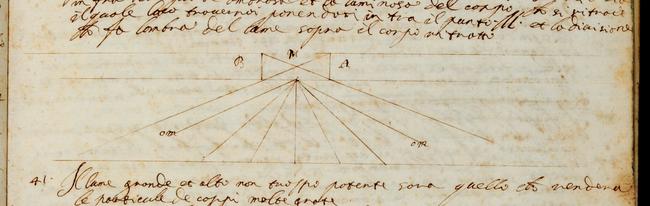 et la luminosa del corpo
il quale loco troverai ponendoti in tra il punto M. et la divisione
fa l'ombra del lume sopra il corpo
B M A
om om
41. Il lume grande et alto non troppo potente sara quello che rendera
le particule de corpi molto grate